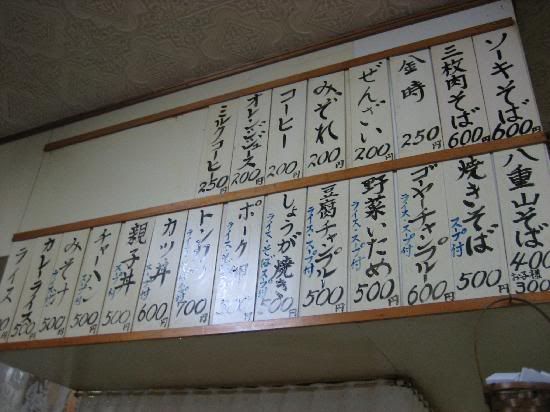 ソーキそば 600円
三枚肉そば 600円
金時 250円
ぜんざい 200円
みぞれ 200円
コーヒー 200円
オレンジジュース 200円
ミルクコーヒー 250円
八重山そば 400円 お子様 300円
焼きそば スープ付 500円
ゴーヤチャンプルー ライス・スープ付 600円
野菜いため ライス・スープ付 500円
豆腐チャンプルー ライス・スープ付 500円
しょうが焼き ライス・スープ付 500円
ポーク
トンカツ ライス・スープ付 700円
カツ丼 スープ付 600円
親子丼 スープ付 500円
チャーハン スープ付 500円
みそ汁 500円
カレーライス 500円
ライス